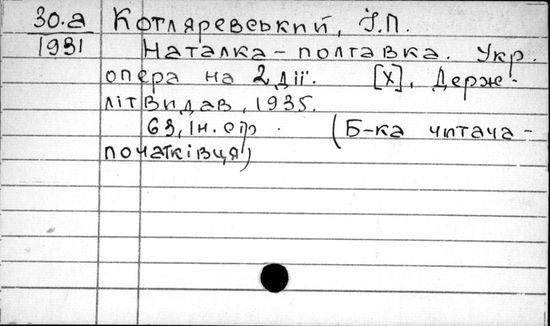 30.а Котляревський, І.П.
1931 Наталка-полтавка. Укр.
опера на 2 дії. [Х], Держ-
літвидав, 1935.
63, Ін. стр. (Б-ка читача-
початківця)